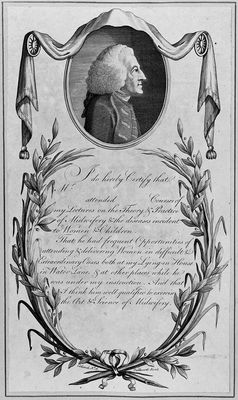 I do hereby Certify that
Mr.
attended Courses of
my Lectures on the Theory & Practice
of Midwifery & the diseases incident
to Women & Children.
That he had frequent Opportunities of
attending & delivering Women in difficult &
Extraordinary Cases both at my Lying-in House
in Water Lane & at other places while he
was under my instruction. And that
I think him well qualified to exercise
the Art & Science of Midwifery.